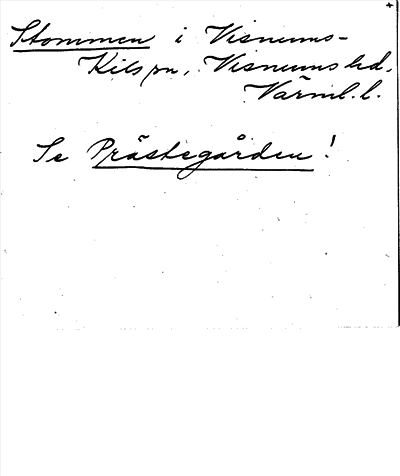 Stommen i Visnums-
Kils sn, Visnums hd,
Värml. l.
Se Prästegården!